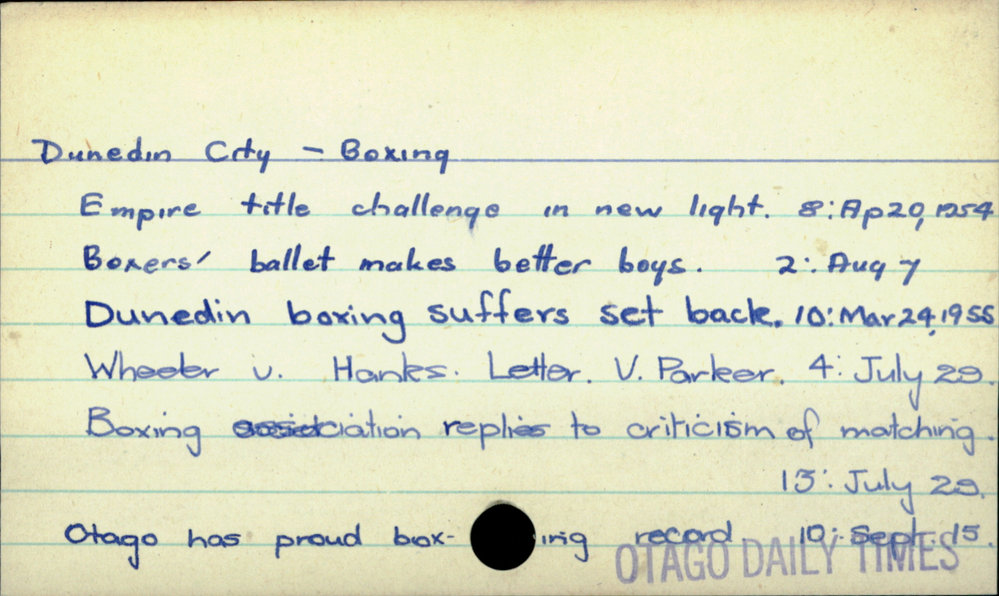 Dunedin City - Boxing
Empire title challenge in new light. 8: Ap 20, 1954
Boxers' ballet makes better boys. 2: Aug 7
Dunedin boxing suffers set back. 10: Mar 24, 1955
Wheeler v. Hanks. Letter. V. Parker. 4: July 29.
Boxing association replies to criticism of matching.
13: July 29.
Otago has proud box-ing record 10: Sept. 15.
OTAGO DAILY TIMES